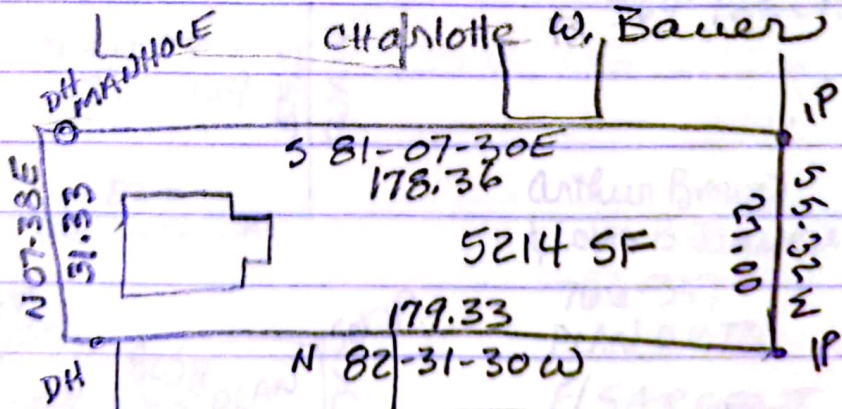 Charlotte W. Bauer
DH MANHOLE
IP
S 81-07-30E
178.36
N 07-38E
31.33
5214 SF
27.00
S 5-32 W
179.33
N 82-31-30W
DH
IP